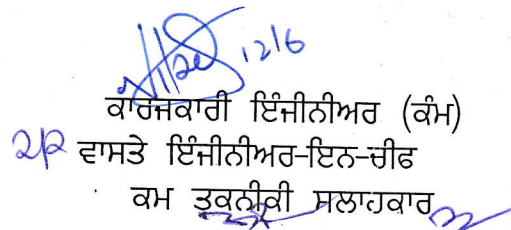 12/6
ਕਾਰਜਕਾਰੀ ਇੰਜੀਨੀਅਰ (ਕੰਮ)
ਵਾਸਤੇ ਇੰਜੀਨੀਅਰ-ਇਨ-ਚੀਫ
ਕਮ ਤਕਨੀਕੀ ਸਲਾਹਕਾਰ